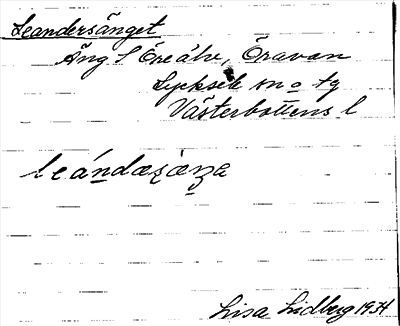 Leandersänget
Äng S Öreälv, Öravan
Lycksele sn o tg
Västerbottens l
leándæʂæ̀ŋa
Lisa Lidberg 1934